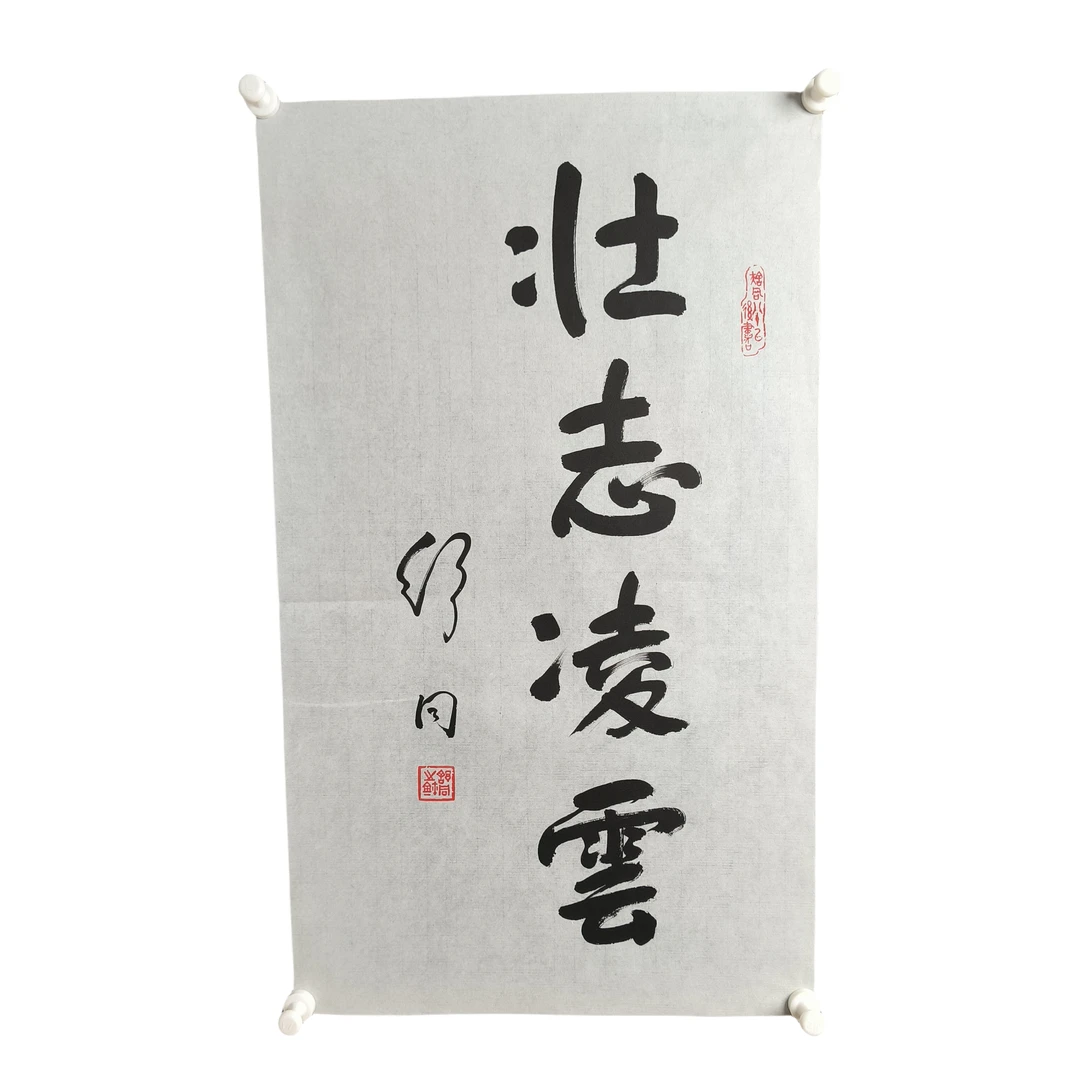 壮志凌雲
舒同